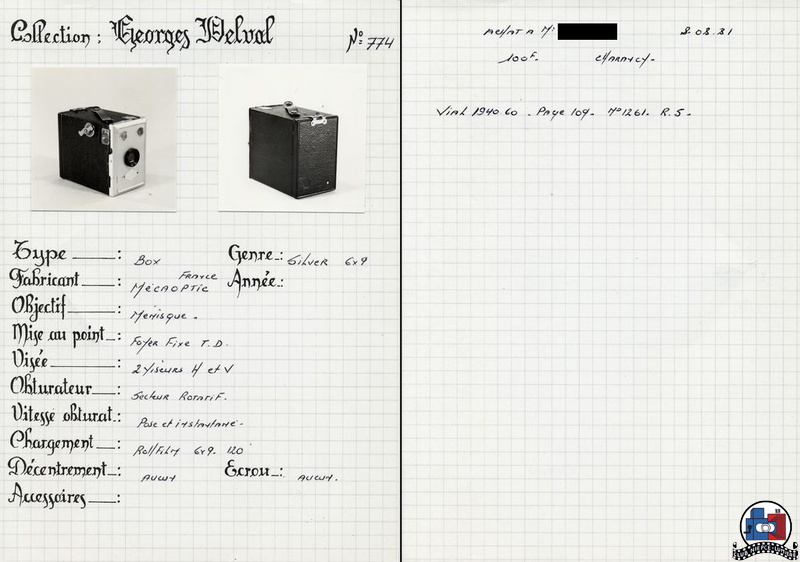 Collection : Georges Delval
Nº 774
Type : Box
Genre : Silver 6x9
Fabricant : France
Mécaoptic
Année :
Objectif : Ménisque .
Mise au point : Foyer Fixe T.D.
Visée : 2 Viseurs H et V
Obturateur : Secteur Rotatif.
Vitesse obturat. : Pose et instantané -
Chargement : Rollfilm 6x9- 120
Décentrement : Aucun
Ecrou : Aucun .
Accessoires :
Achat a Mr
8.08.81
100F. Charnicy-
Vial 1940.60 - Page 109- Nº1261- R.5-